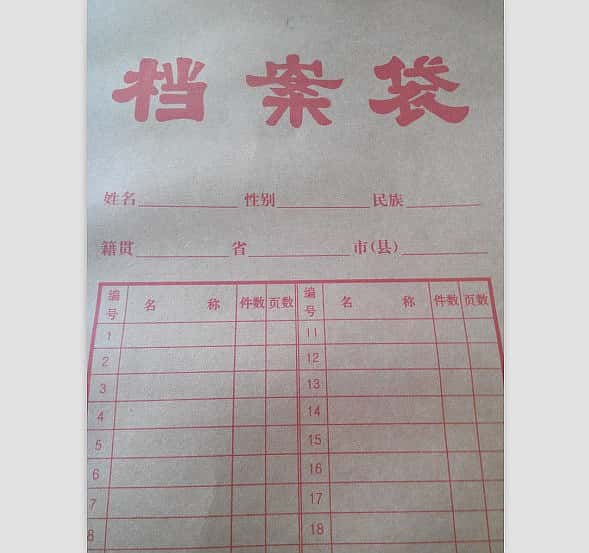 档案袋
姓名 性别 民族
籍贯 省 市(县)
编号 名 称 件数 页数 编号 名 称 件数 页数
1 11
2 12
3 13
4 14
5 15
6 16
7 17
8 18